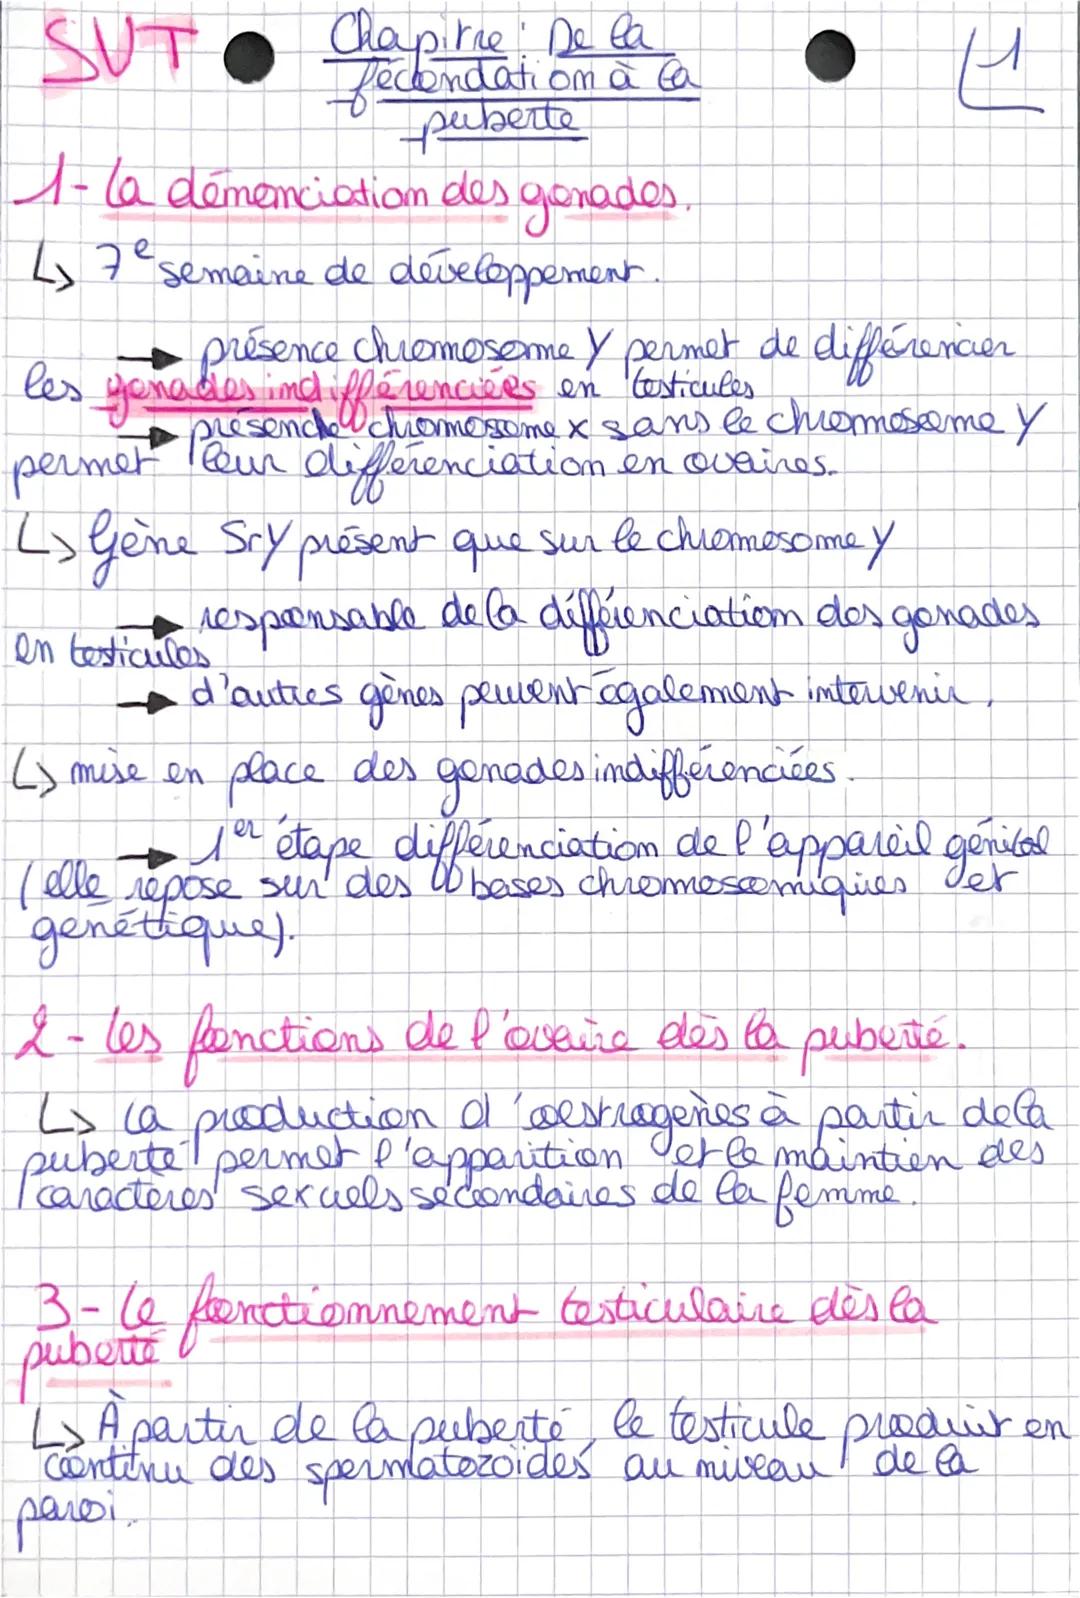 SVT
Chapitre : De la
fécondation à la
puberté
1
1- La démonciation des gonades.
↳ 7e semaine de développement.
→ présence chromosome Y permet de différencier
les gonades indifférenciées en testicules
→ présence chromosome x sans le chromosome Y
permet leur différenciation en ovaires.
↳ Gène SrY présent que sur le chromosome Y
→ responsable de la différenciation des gonades
en testicules
→ d'autres gènes peuvent également intervenir.
↳ mise en place des gonades indifférenciées.
→ 1er étape différenciation de l'appareil génital
(elle repose sur des bases chromosomiques et
génétique).
2- Les fonctions de l'ovaire dès la puberté.
↳ La production d'oestrogènes à partir de la
puberté permet l'apparition et le maintien des
caractères sexuels secondaires de la femme.
3- Le fonctionnement testiculaire dès la
puberté
↳ À partir de la puberté, le testicule produit en
continu des spermatozoïdes au niveau de la
paroi.